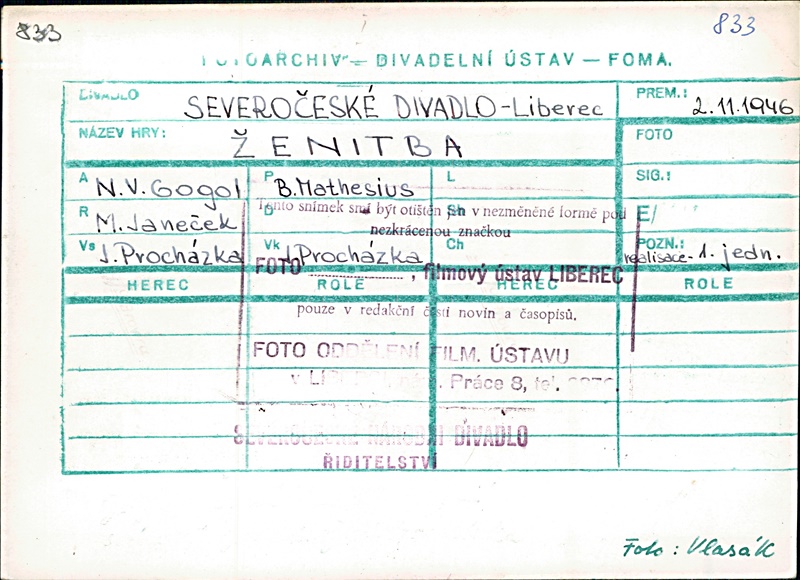 833
833
FOTOARCHIV — DIVADELNÍ ÚSTAV — FOMA.
DIVADLO SEVEROČESKÉ DIVADLO-Liberec PREM.: 2.11.1946
NÁZEV HRY: ŽENITBA FOTO
A N.V. Gogol P B. Mathesius L SIG.:
Tento snímek smí být otištěn jen v nezměněné formě pod
R M. Janeček D Sh E/
nezkrácenou značkou
Vs J. Procházka Vk J. Procházka Ch POZN.: realisace-1. jedn.
FOTO , filmový ústav LIBEREC
HEREC ROLE HEREC ROLE
pouze v redakční části novin a časopisů.
FOTO ODDĚLENÍ FILM. ÚSTAVU
v Práce 8, tel.
SEVEROČESKÉ NÁRODNÍ DIVADLO
ŘIDITELSTVÍ
Foto: Vlasák